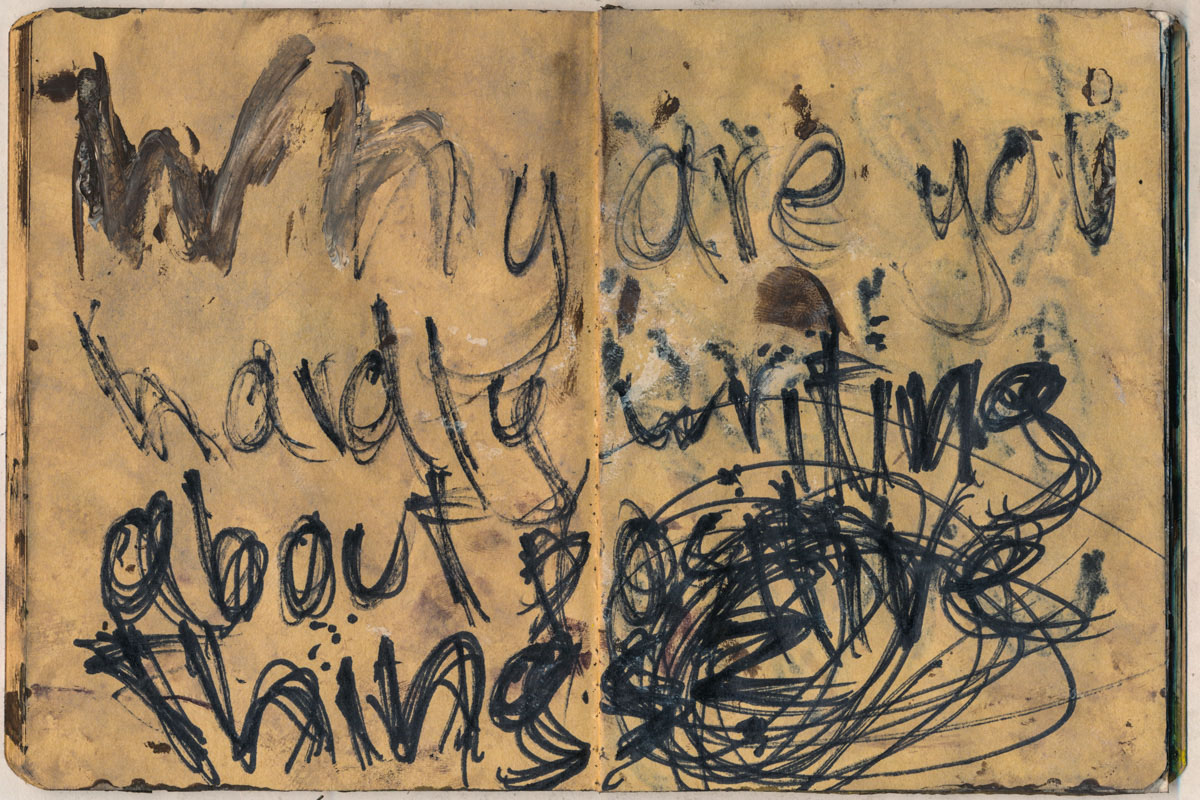 Why are you
hardly writing
about positive
things